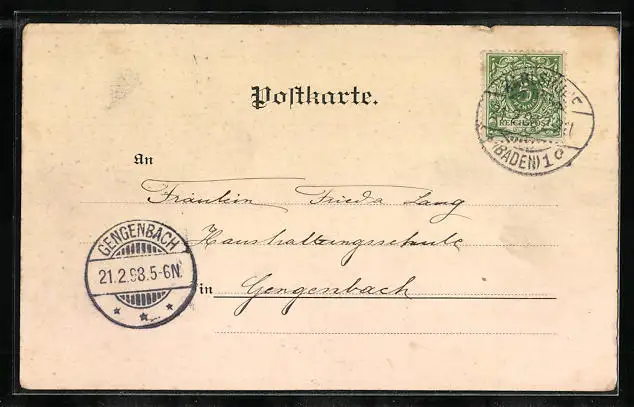 Postkarte.
5
REICHSPOST
(BADEN) 1
An
Fräulein Frieda Lang
Haushaltungsschule
in Gengenbach
GENGENBACH
21.2.98.5-6N.